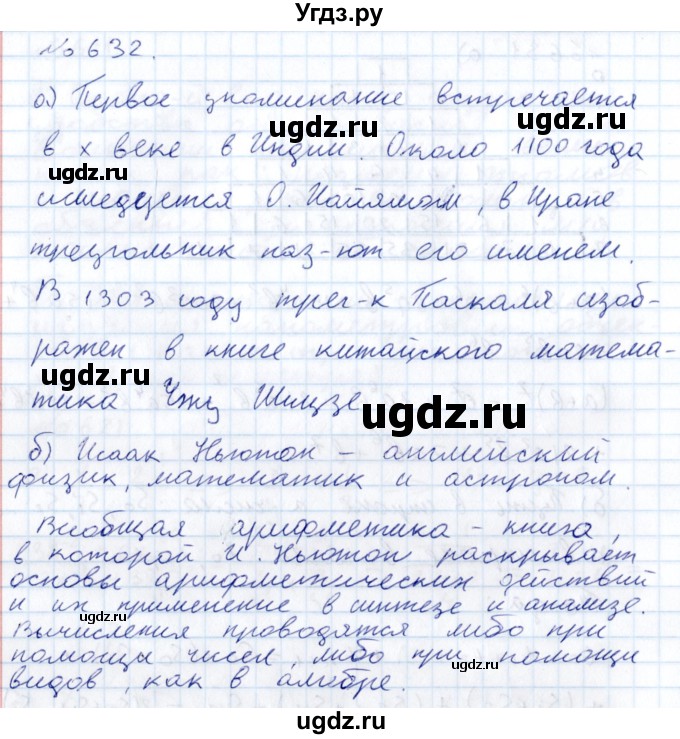 Угдз.ру
№632.
а) Первое упоминание встречается
в х веке в Индии. Около 1100 года
исследуется О. Хайямом, в Иране
треугольник наз-ют его именем.
В 1303 году треу-к Паскаля изоб-
ражен в книге китайского матема-
тика Чжу Шицзе
б) Исаак Ньютон – английский
физик, математик и астроном.
Всеобщая арифметика – книга,
в которой И. Ньютон раскрывает
основы арифметических действий
и их применение в синтезе и анализе.
Вычисления проводятся либо при
помощи чисел, либо при помощи
видов, как в алгебре.
ugdz.ru
ugdz.ru
ugdz.ru
ugdz.ru
ugdz.ru
ugdz.ru
ugdz.ru
ugdz.ru
ugdz.ru
ugdz.ru